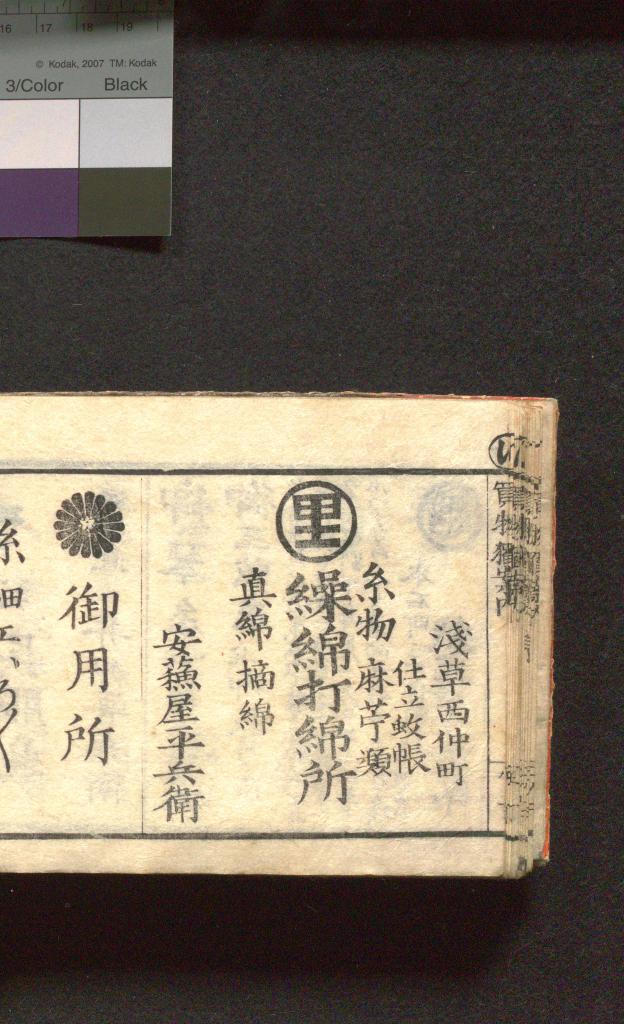 16 17 18 19
© Kodak, 2007 TM: Kodak
3/Color Black
い
淺草西仲町
仕立蚊帳
糸物 麻苧類
里
繰綿打綿所
真綿 摘綿
安蘓屋平兵衛
御用所
糸
細工